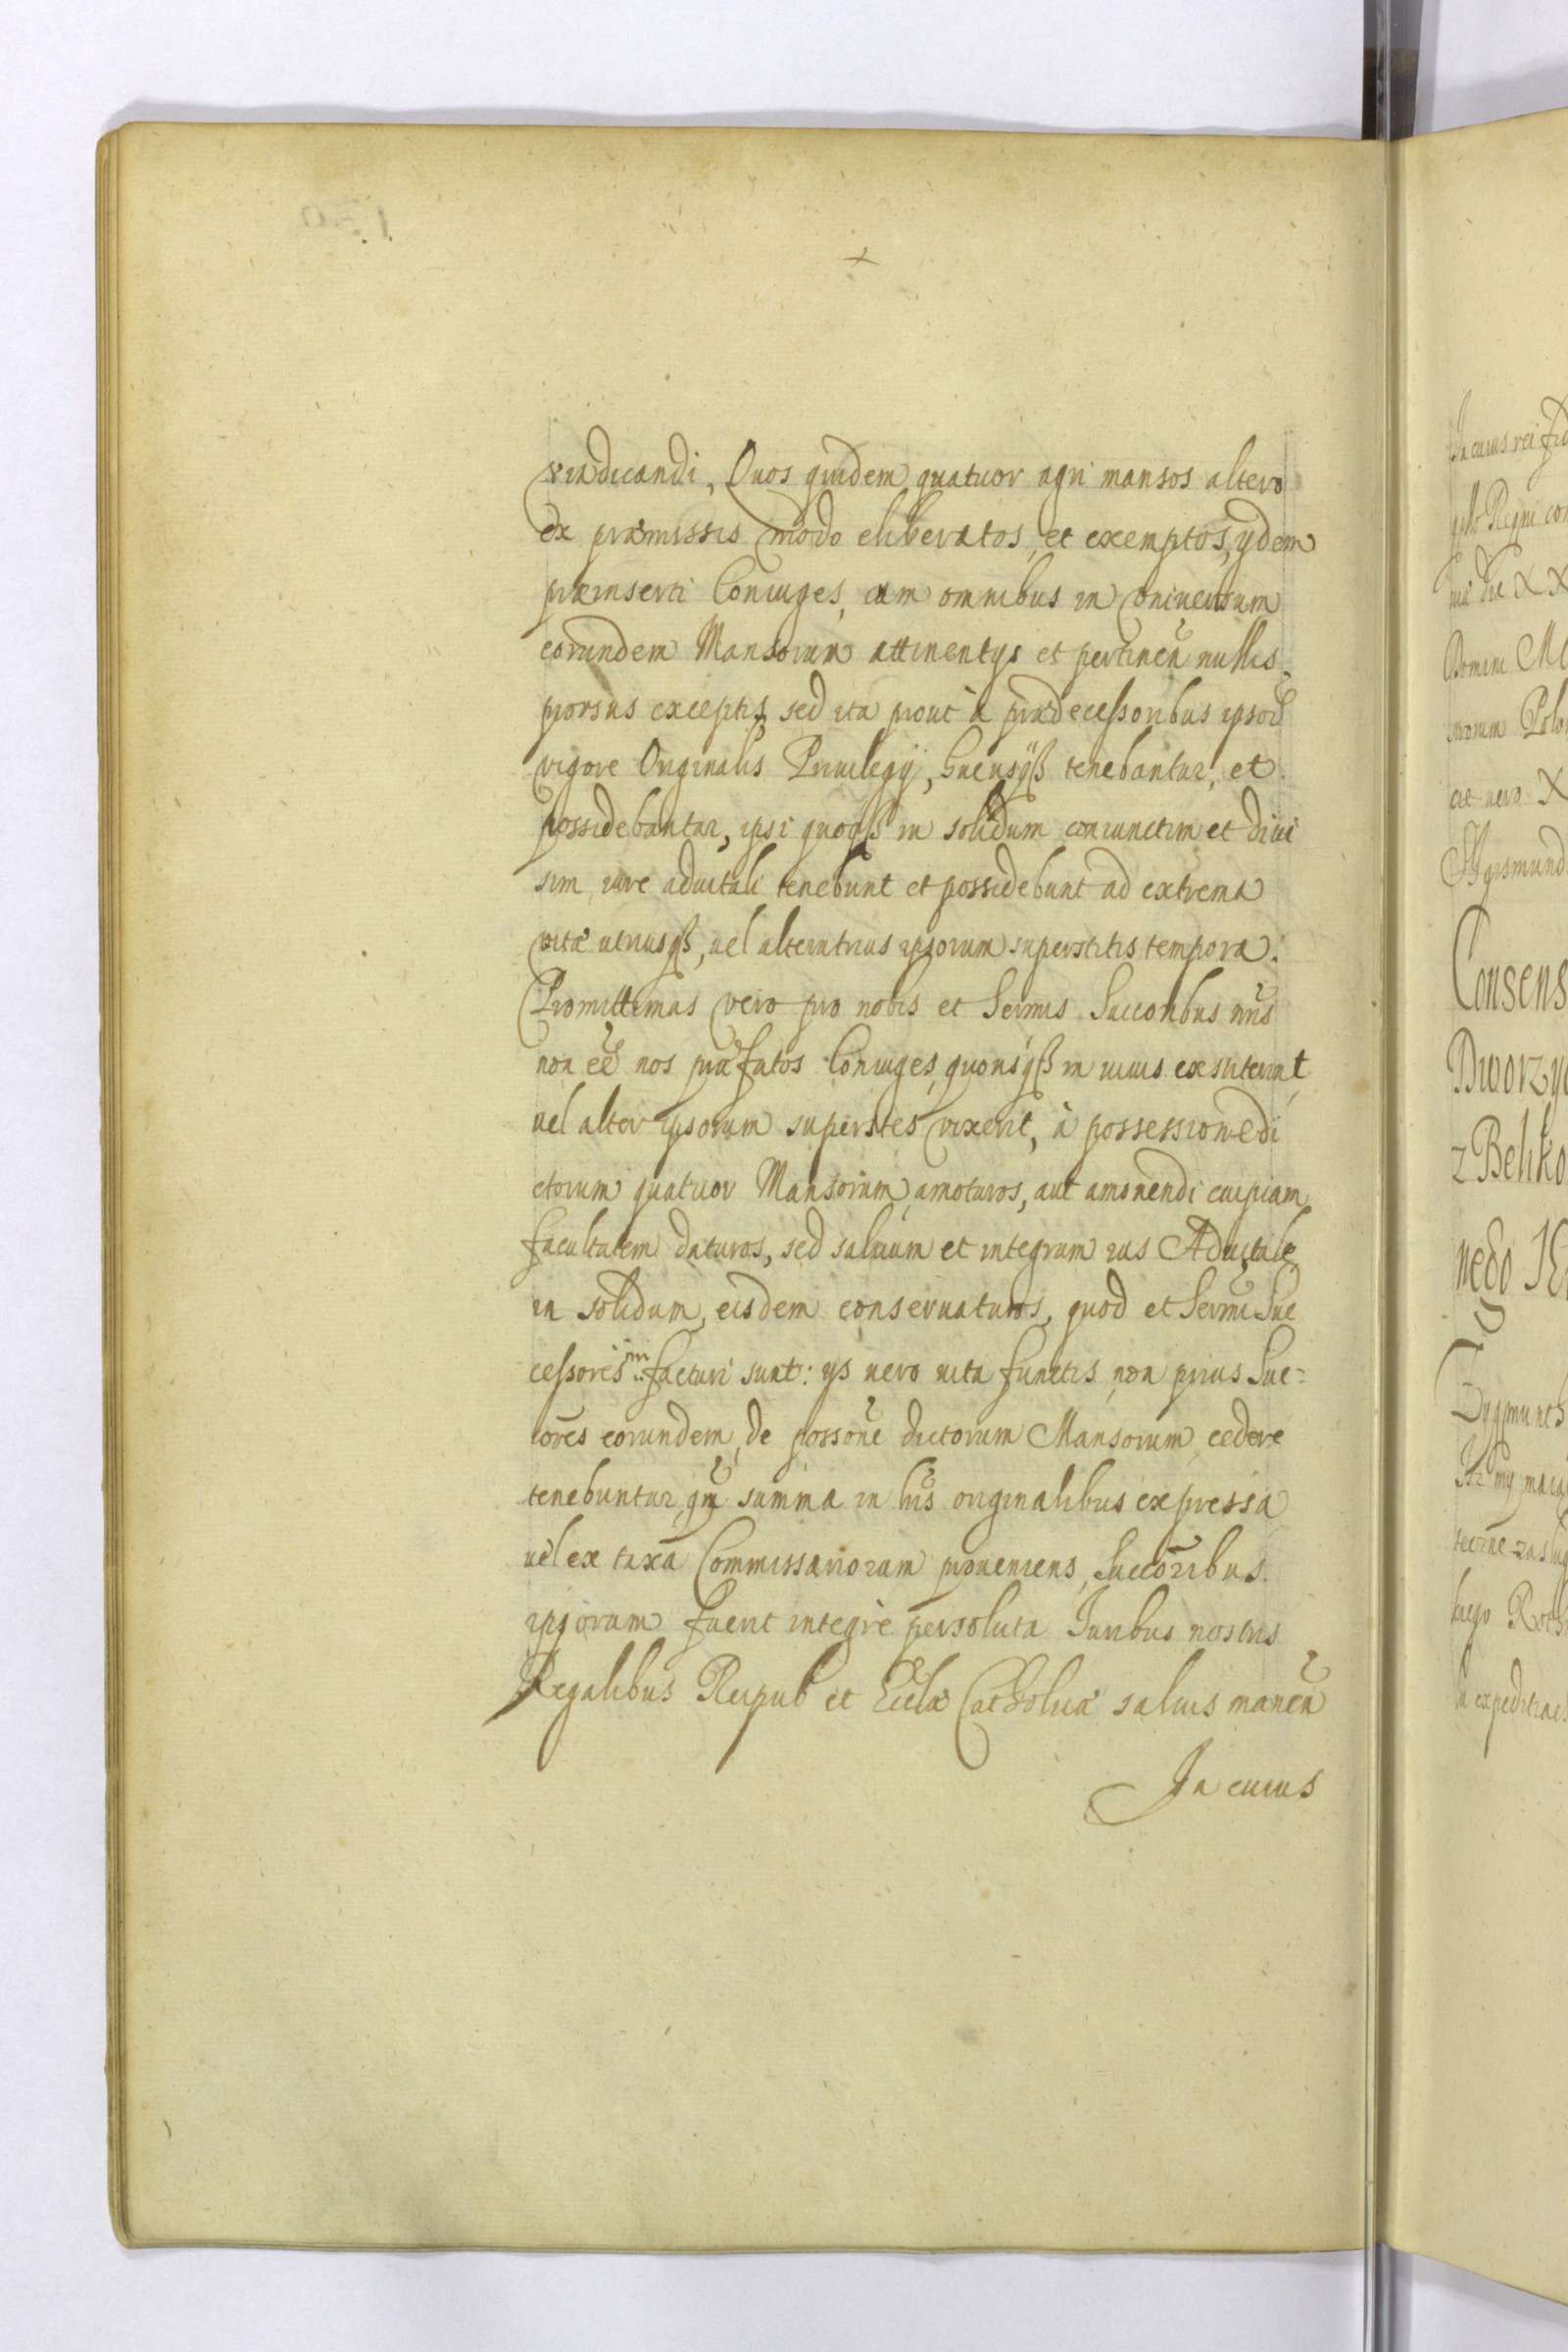 vindicandi, Quos quidem quatuor agri mansos altero
ex præmissis modo eliberatos, et exemptos, ydem
præinserti Coniuges, cum omnibus in vniuersum
eorundem Mansorum attinentys et pertineñ nullis
prorsus exceptis, sed ita prout à prædecessoribus ipsoru͂
vigore Originalis Priuilegÿ, hucusq́ß tenebantur, et
possidebantur, ipsi quoqß in solidum coniunctim et diui
sim iure aduitali tenebunt et possidebunt ad extrema
vitæ utriusqß, uel alterutrius ipsorum superstitis tempora.
Promittimus vero pro nobis et Sermis Succoribus nris
non eẽ nos præfatos Coniuges, quousqß in uiuis exstiterint,
uel alter ipsorum superstes vixerit, à possessione di
ctorum quatuor Mansorum amoturos, aut amouendi cuipiam
facultatem daturos, sed saluum et integrum ius Aduitale,
in solidum, eisdem conseruaturos, quod et Sermi Suc
cessores nri facturi sunt: ys uero uita functis, non prius Suc=
cores eorundem, de possone dictorum Mansorum cedere
tenebuntur, qu͂ summa in lris originalibus expressa
uel ex taxa Commissariorum proueniens, Succoribus
ipsorum fuerit integre persoluta Iuribus nostris
Regalibus Reipub et Eccłæ Catholicæ saluis maneñ
In cuius
In cuius rei fid
Regni con
die XX
Domini M
norum Polo
uero X
Sigismund
Consens
Dworzy
z Beliko
nego
Zygmunth
my
expeditiach